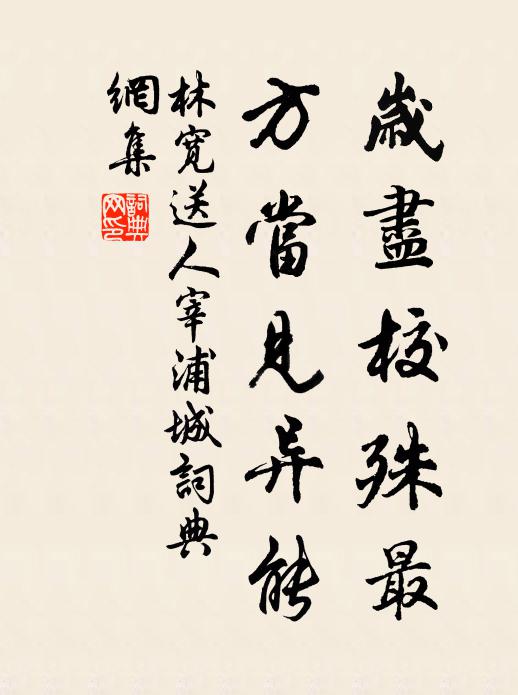 歲盡校殊最
方當見异能
林寬送人宰浦城詞典
網集
詞典
网印